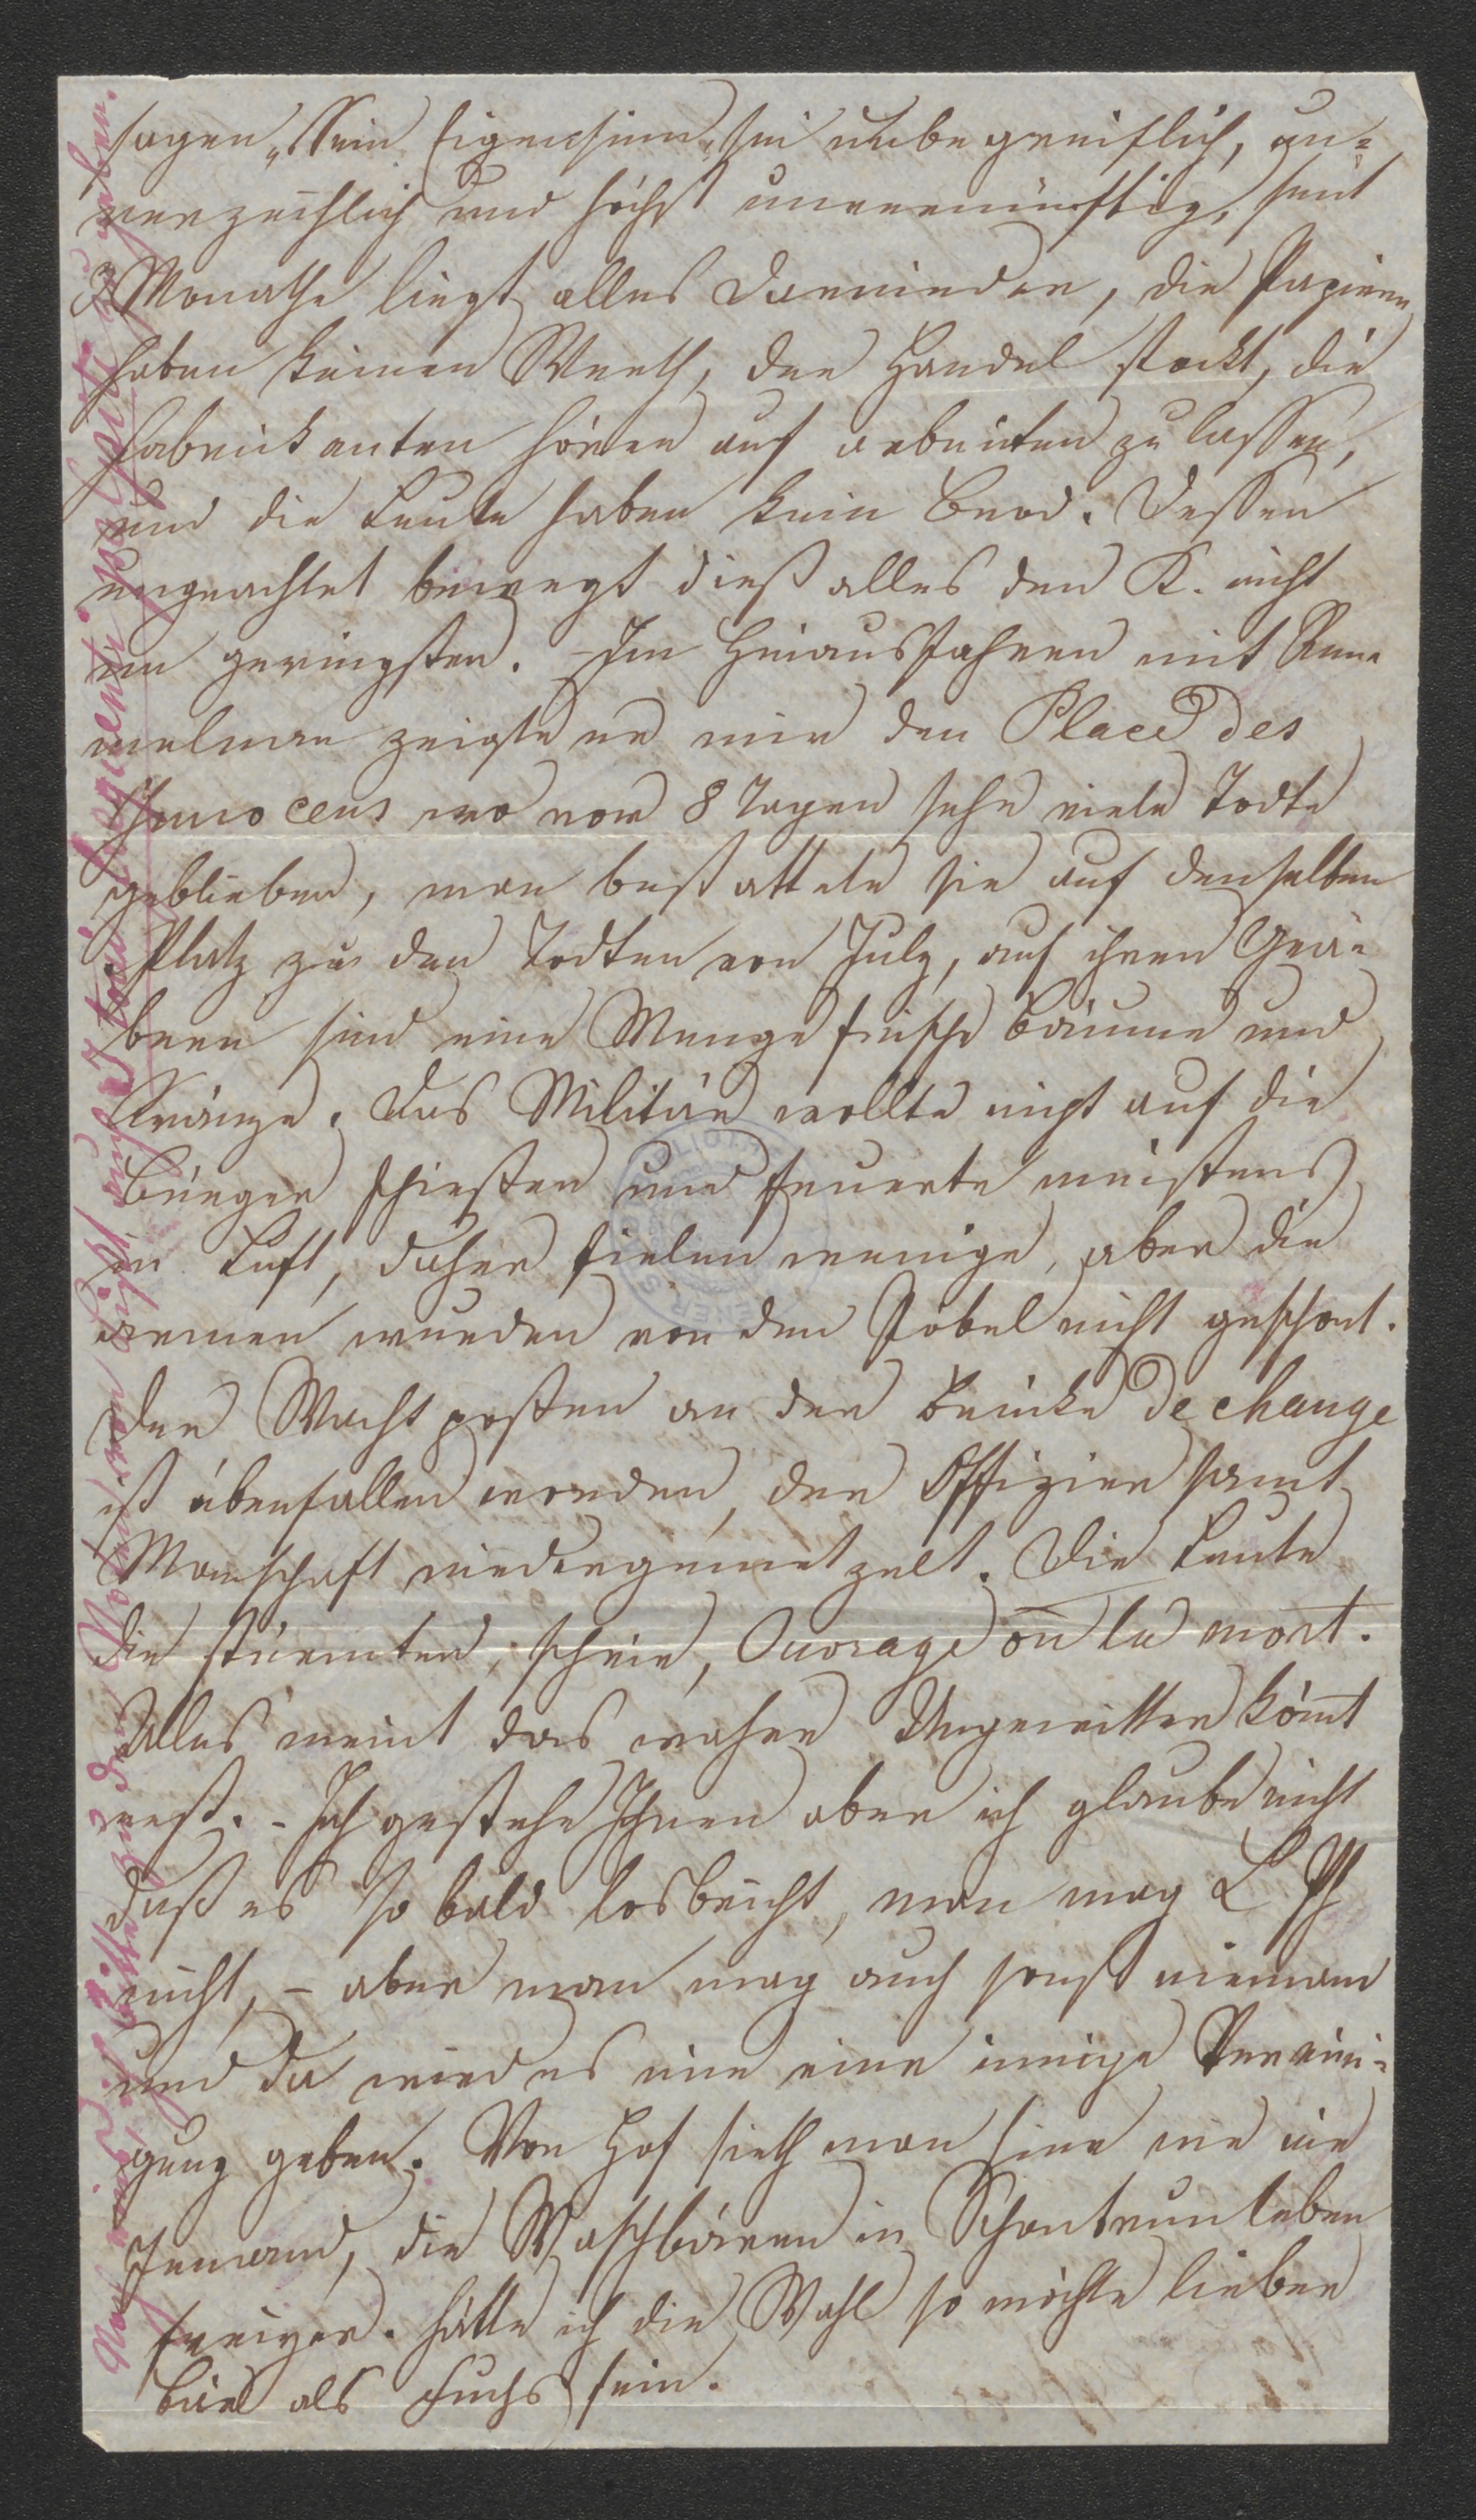 sagen, „Sein Eigensinn“ sei unbegreiflich, un-
verzeihlich und höchst unvernünftig, seit
3 Monathe liegt alles darnieder, die Papiere
haben keinen Werth, der Handel stockt, die
Fabrickanten hören auf arbeiten zu lassen,
und die Leute haben kein Brod. Dessen
ungeachtet bewegt dieß alles den K. nicht
im geringsten. – Im Hinausfahren mit
zeigte er mir den Place des
Innocens wo vor 8 Tagen sehr viele Todte
geblieben, man bestattete sie auf denselben
Platz zu den Todten von July, auf ihren Grä-
bern sind eine Menge frische Bäume und
Kränze. Das Militär wollte nicht auf die
Bürger schießen und feuerte meistens
in Luft, daher fielen wenige, aber die
armen wurden von den Pöbel nicht geschont.
Der Wachtposten an der Brücke de change
ist überfallen worden, der Offizier samt
Manschaft niedergemetzelt. Die Leute
die stürmten, schrien, Ouvrage ou la mort.
Alles meint das wahre Ungewitter kömt
erst. – Ich gestehe Ihnen aber ich glaube nicht
daß es so bald losbricht, man mag L Ph
nicht, – aber man mag auch sonst niemand
und da wird es nie eine innige Vereini-
gung geben. Von Hof sieth man hier nie nie
Jemand, die Waschbären in Schönbrun leben
freiyer. Hätte ich die Wahl so möchte lieber
Bär als Fuchs sein.